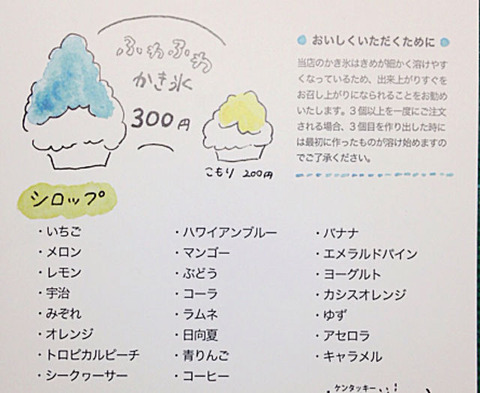 ふわふわ
かき氷
300円
こもり 200円
おいしくいただくために
当店のかき氷はきめが細かく溶けやす
くなっているため、出来上がりすぐを
お召し上がりになられることをお勧め
いたします。3個以上を一度にご注文
される場合、3個目を作り出した時に
は最初に作ったものが溶け始めますの
でご了承ください。
シロップ
・いちご
・メロン
・レモン
・宇治
・みぞれ
・オレンジ
・トロピカルピーチ
・シークヮーサー
・ハワイアンブルー
・マンゴー
・ぶどう
・コーラ
・ラムネ
・日向夏
・青りんご
・コーヒー
・バナナ
・エメラルドパイン
・ヨーグルト
・カシスオレンジ
・ゆず
・アセロラ
・キャラメル
ケンタッキー